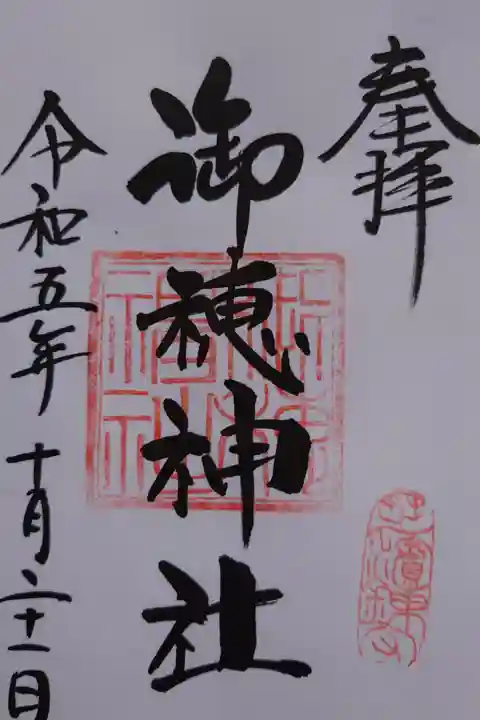 奉拝
御穂神社
令和五年十月二十一日